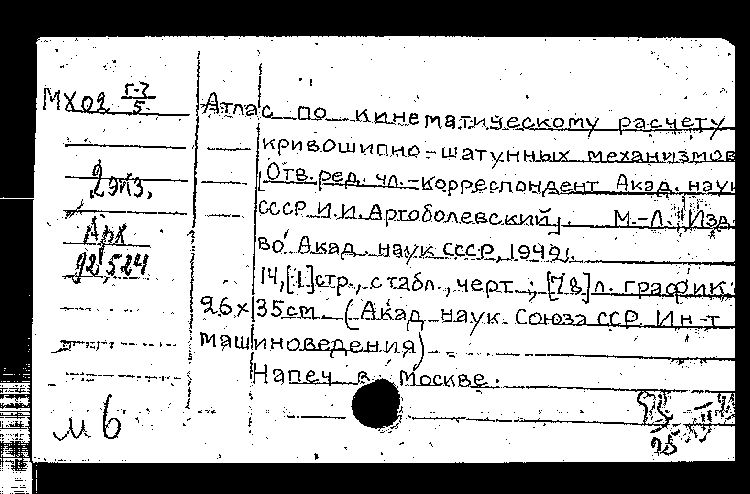 МХ02 Г-7/5
Атлас по кинематическому расчету
кривошипно-шатунных механизмов
[Отв. ред. чл.-корреспондент Акад. наук
2 экз.
СССР И.И. Артоболевский]. М.-Л. Изд-
Арх
во Акад. наук СССР, 1949.
92,524
14, [1] стр., с табл., черт.; [78] л. график.
26x35см. (Акад. наук Союза ССР. Ин-т
машиноведения)
Напеч. в Москве.
м 6